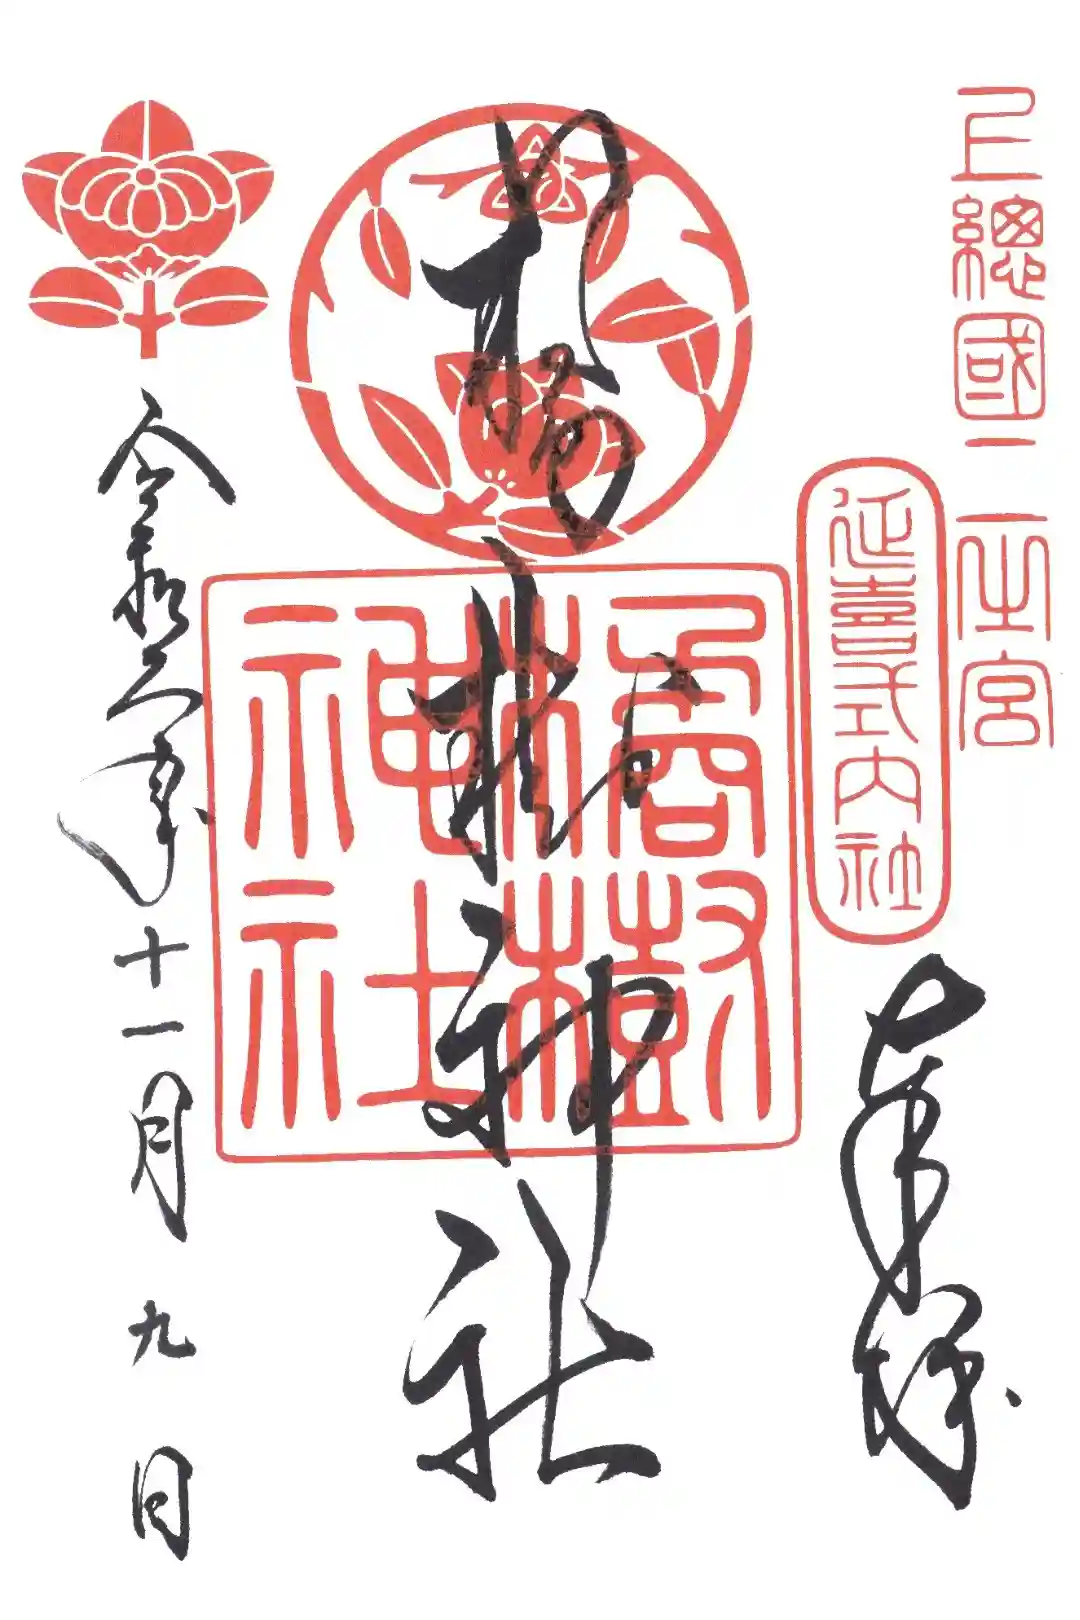 上總國二之宮
延喜式内社
奉拝
橘樹神社
橘樹神社
令和二年十一月九日